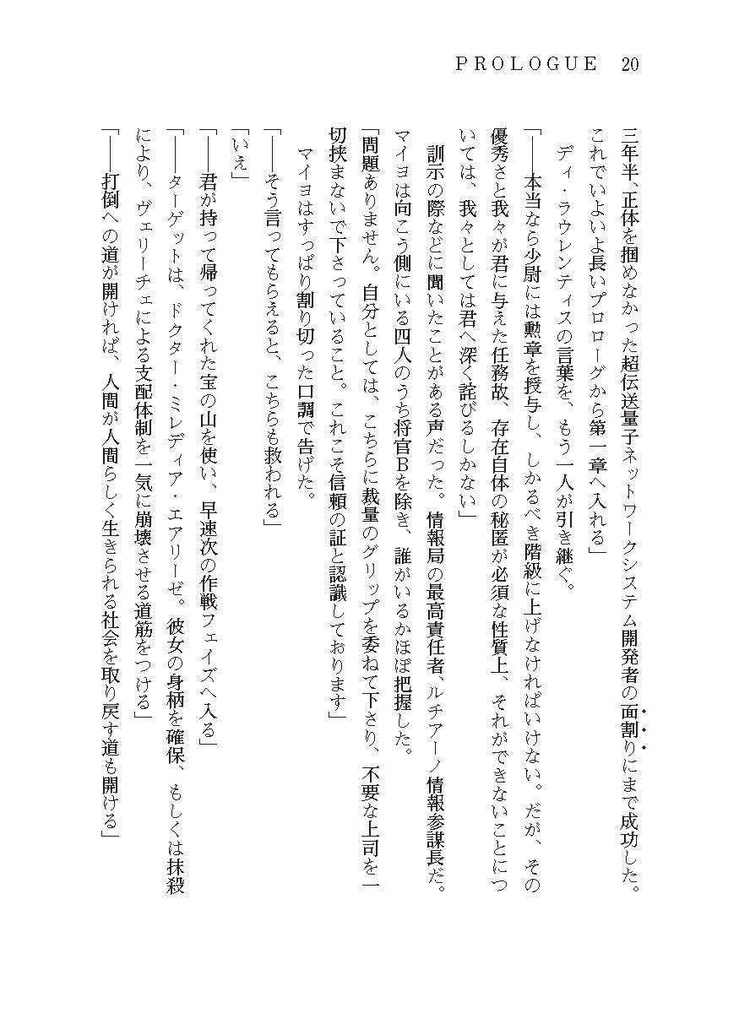 PROLOGUE 20
三年半、正体を掴めなかった超伝送量子ネットワークシステム開発者の面割りにまで成功した。
これでいよいよ長いプロローグから第一章へ入れる」
ディ・ラウレンティスの言葉を、もう一人が引き継ぐ。
「――本当なら少尉には勲章を授与し、しかるべき階級に上げなければいけない。だが、その
優秀さと我々が君に与えた任務故、存在自体の秘匿が必須な性質上、それができないことにつ
いては、我々としては君へ深く詫びるしかない」
訓示の際などに聞いたことがある声だった。情報局の最高責任者、ルチアーノ情報参謀長だ。
マイヨは向こう側にいる四人のうち将官Ｂを除き、誰がいるかほぼ把握した。
「問題ありません。自分としては、こちらに裁量のグリップを委ねて下さり、不要な上司を一
切挟まないで下さっていること。これこそ信頼の証と認識しております」
マイヨはすっぱり割り切った口調で告げた。
「――そう言ってもらえると、こちらも救われる」
「いえ」
「――君が持って帰ってくれた宝の山を使い、早速次の作戦フェイズへ入る」
「――ターゲットは、ドクター・ミレディア・エアリーゼ。彼女の身柄を確保、もしくは抹殺
により、ヴェリーチェによる支配体制を一気に崩壊させる道筋をつける」
「――打倒への道が開ければ、人間が人間らしく生きられる社会を取り戻す道も開ける」